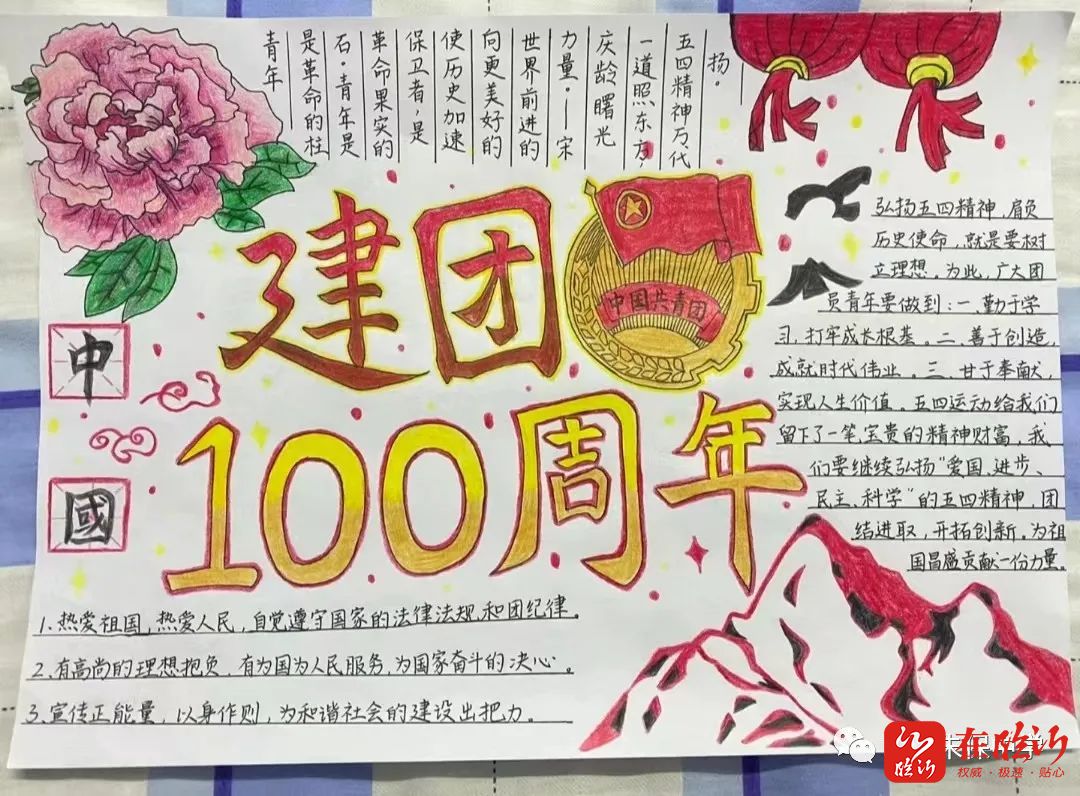 青年
是革命的柱
石。青年是
革命果实的
保卫者，是
使历史加速
向更美好的
世界前进的
力量。——宋
庆龄 曙光
一道照东方，
五四精神万代
扬。
建团
中国共青团
100周年
中
國
弘扬五四精神，肩负
历史使命，就是要树
立理想。为此，广大团
员青年要做到：一、勤于学
习，打牢成长根基。二、善于创造，
成就时代伟业。三、甘于奉献，
实现人生价值。五四运动给我们
留下了一笔宝贵的精神财富，我
们要继续弘扬“爱国、进步、
民主、科学”的五四精神，团
结进取，开拓创新，为祖
国昌盛贡献一份力量。
1、热爱祖国，热爱人民，自觉遵守国家的法律法规和团纪律。
2、有高尚的理想抱负，有为国为人民服务，为国家奋斗的决心。
3、宣传正能量，以身作则，为和谐社会的建设出把力。
临沂
在临沂
权威·极速·贴心